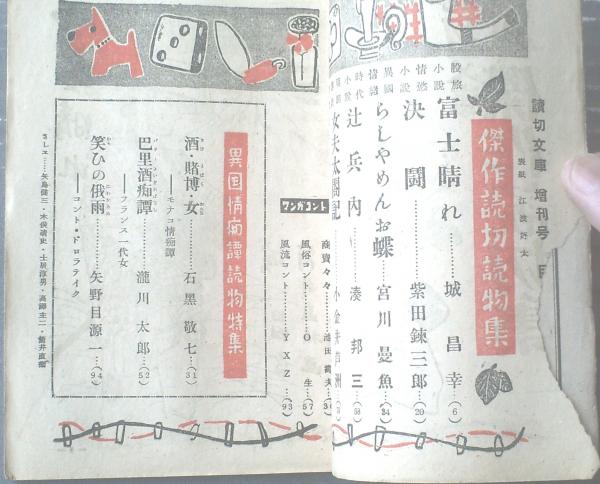 讀切文庫 増刊号 目
表紙 江渡許太
傑作読切読物集
股旅小説 富士晴れ……城昌幸…(6)
情慾小説 決闘……柴田錬三郎…(20)
異國情話 らしやめんお蝶……宮川曼魚…(34)
時代小説 辻兵内……湊邦三…(58)
女夫太閤記……小金井芦洲
ワンカコント
商賣々々……池田壽夫…(30)
風俗コント……O生…(57)
風流コント……YXZ…(93)
異国情痴譚読物特集
酒・賭博・女
――モナコ情痴譚
石黒敬七…(31)
巴里酒痴譚
――フランス一代女
瀧川太郎…(52)
笑ひの俄雨
――コント・ドロラテイク
矢野目源一…(94)
カット……矢島健三・木俣清史・土居淳男・高師圭二・筒井直衛